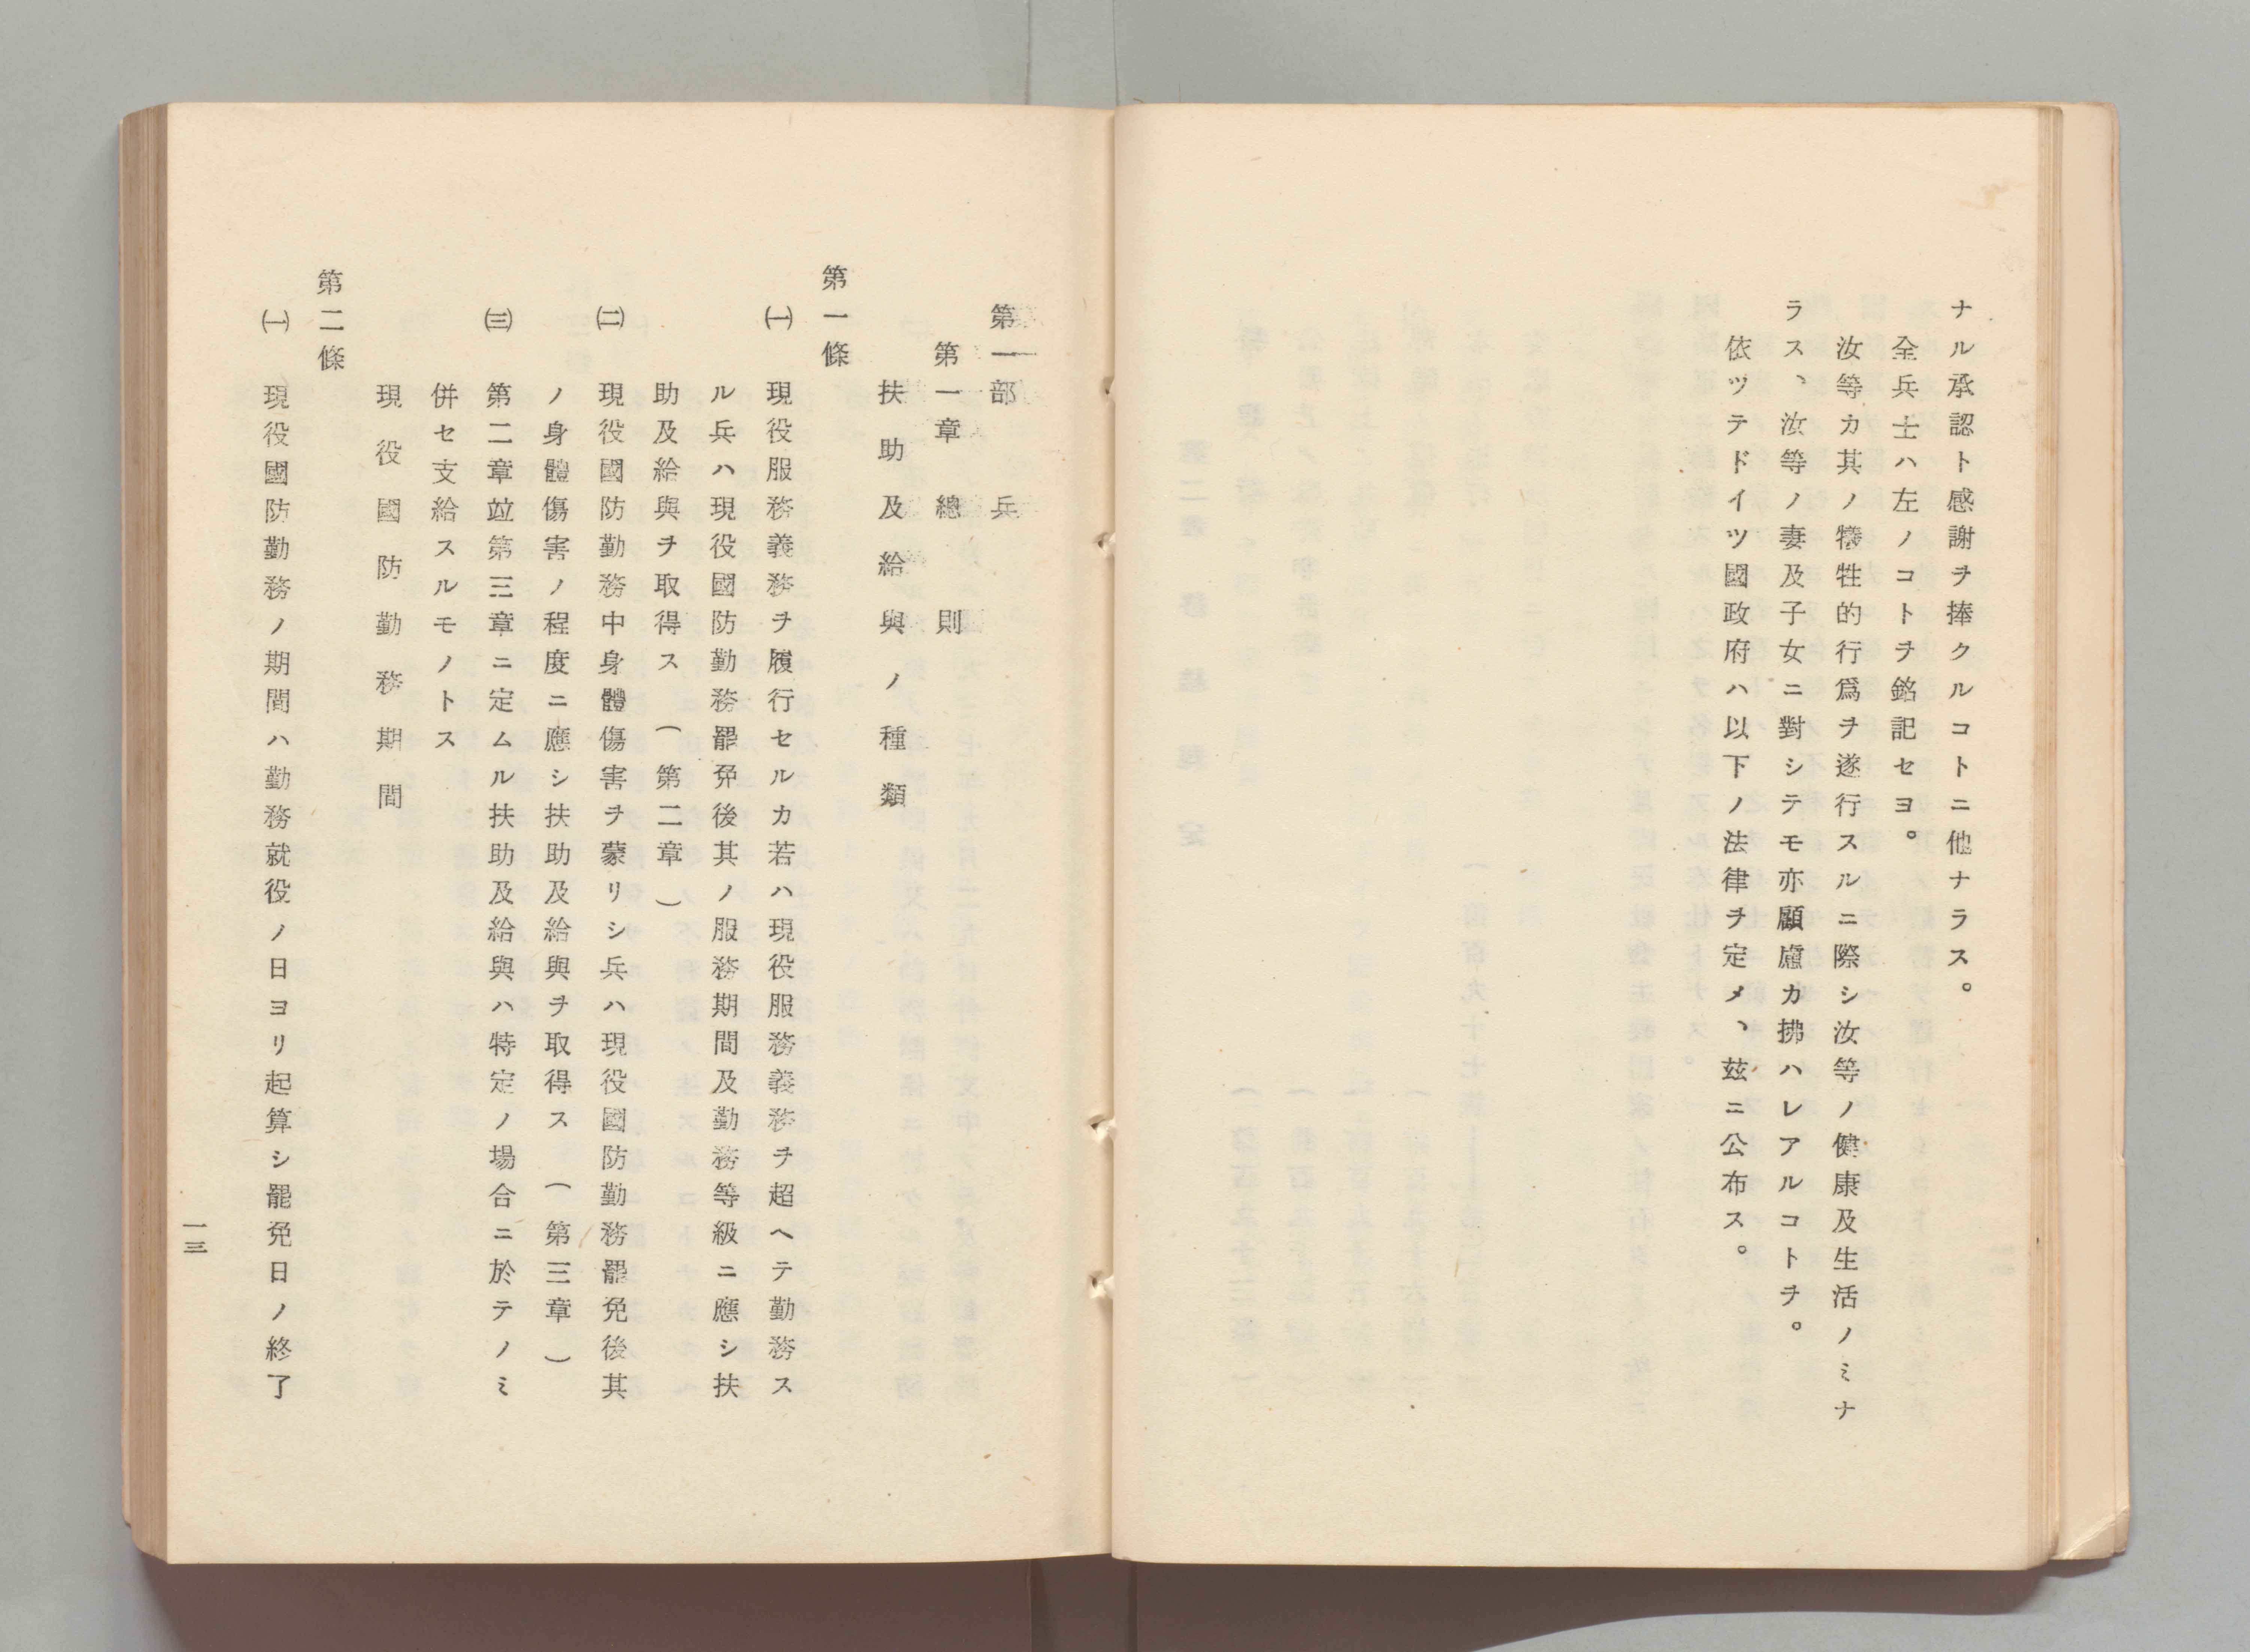 ナル承認ト感謝ヲ捧クルコトニ他ナラス。
全兵士ハ左ノコトヲ銘記セヨ。
汝等カ其ノ犠牲的行爲ヲ遂行スルニ際シ汝等ノ健康及生活ノミナ
ラス、汝等ノ妻及子女ニ對シテモ亦顧慮カ拂ハレアルコトヲ。
依ツテドイツ國政府ハ以下ノ法律ヲ定メ、玆ニ公布ス。
第一部 兵
第一章 總則
扶助及給與ノ種類
第一條
㈠ 現役服務義務ヲ履行セルカ若ハ現役服務義務ヲ超ヘテ勤務ス
ル兵ハ現役國防勤務罷免後其ノ服務期間及勤務等級ニ應シ扶
助及給與ヲ取得ス (第二章)
㈡ 現役國防勤務中身體傷害ヲ蒙リシ兵ハ現役國防勤務罷免後其
ノ身體傷害ノ程度ニ應シ扶助及給與ヲ取得ス (第三章)
㈢ 第二章竝第三章ニ定ムル扶助及給與ハ特定ノ場合ニ於テノミ
併セ支給スルモノトス
現役國防勤務期間
第二條
㈠ 現役國防勤務ノ期間ハ勤務就役ノ日ヨリ起算シ罷免日ノ終了
一三